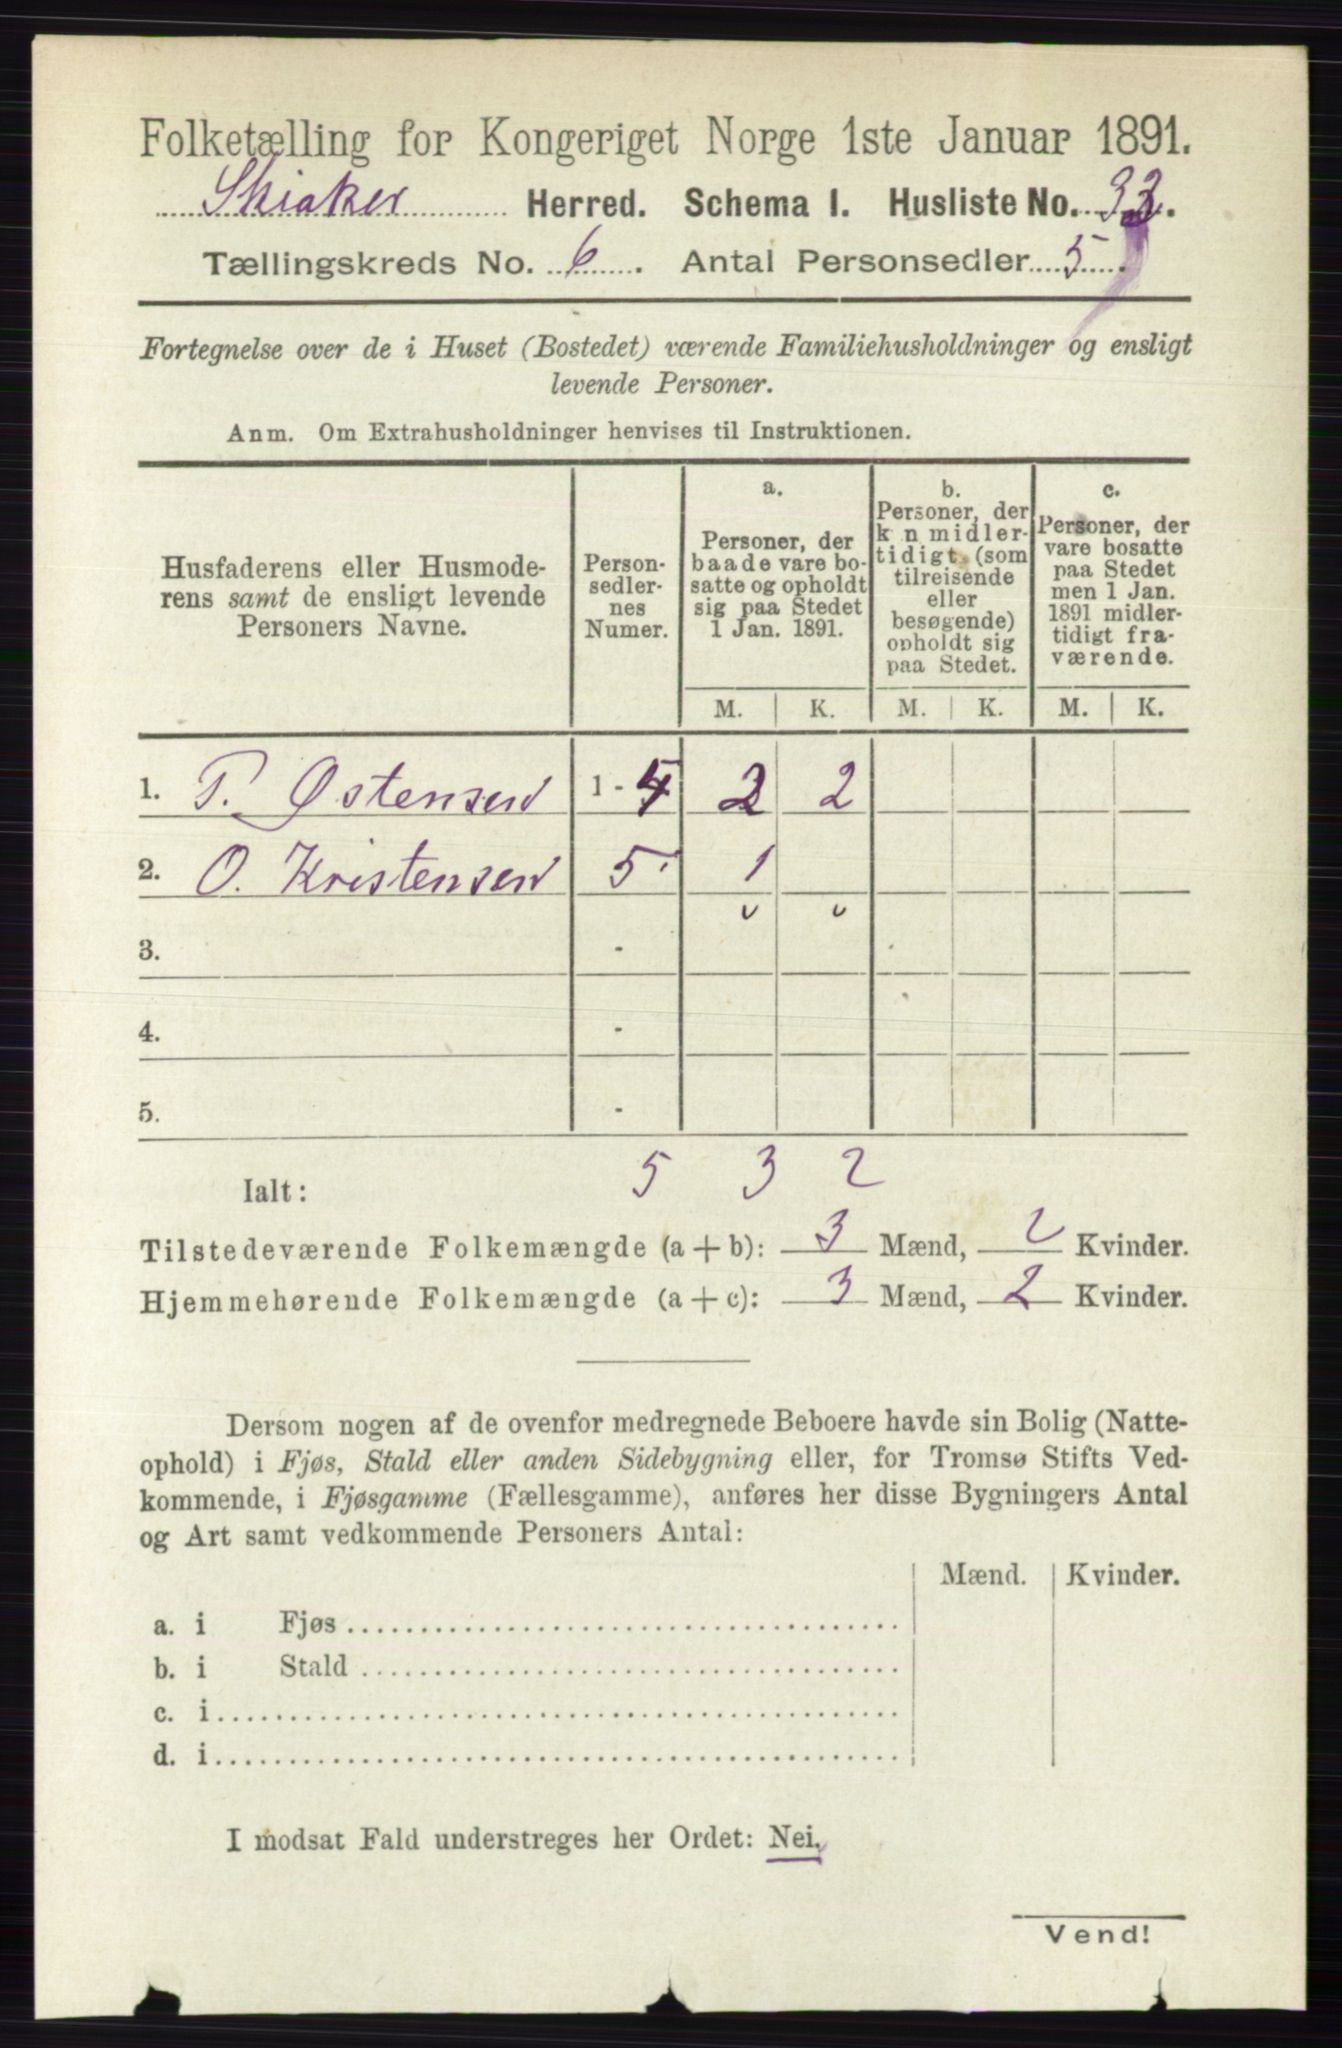 Folketælling for Kongeriget Norge 1ste Januar 1891.
Skiaker Herred. Schema I. Husliste No. 33.
Tællingskreds No. 6. Antal Personsedler 5.
Fortegnelse over de i Huset (Bostedet) værende Familiehusholdninger og ensligt
levende Personer.
Anm. Om Extrahusholdninger henvises til Instruktionen.
Husfaderens eller Husmode-
rens samt de ensligt levende
Personers Navne.
Person-
sedler-
nes
Numer.
a.
Personer, der
baade vare bo-
satte og opholdt
sig paa Stedet
1 Jan. 1891.
b.
Personer, der
k n midler-
tidigt (som
tilreisende
eller
besøgende)
opholdt sig
paa Stedet.
c.
Personer, der
vare bosatte
paa Stedet
men 1 Jan.
1891 midler-
tidigt fra-
værende.
M. K. M. K. M. K.
1. P. Østensen 1 - 4 2 2
2. O. Kristensen 5 1
3. -
4. -
5. -
Ialt: 5 3 2
Tilstedeværende Folkemængde (a + b): 3 Mænd, 2 Kvinder.
Hjemmehørende Folkemængde (a + c): 3 Mænd, 2 Kvinder.
Dersom nogen af de ovenfor medregnede Beboere havde sin Bolig (Natte-
ophold) i Fjøs, Stald eller anden Sidebygning eller, for Tromsø Stifts Ved-
kommende, i Fjøsgamme (Fællesgamme), anføres her disse Bygningers Antal
og Art samt vedkommende Personers Antal:
Mænd. Kvinder.
a. i Fjøs
b. i Stald
c. i
d. i
I modsat Fald understreges her Ordet: Nei.
Vend!